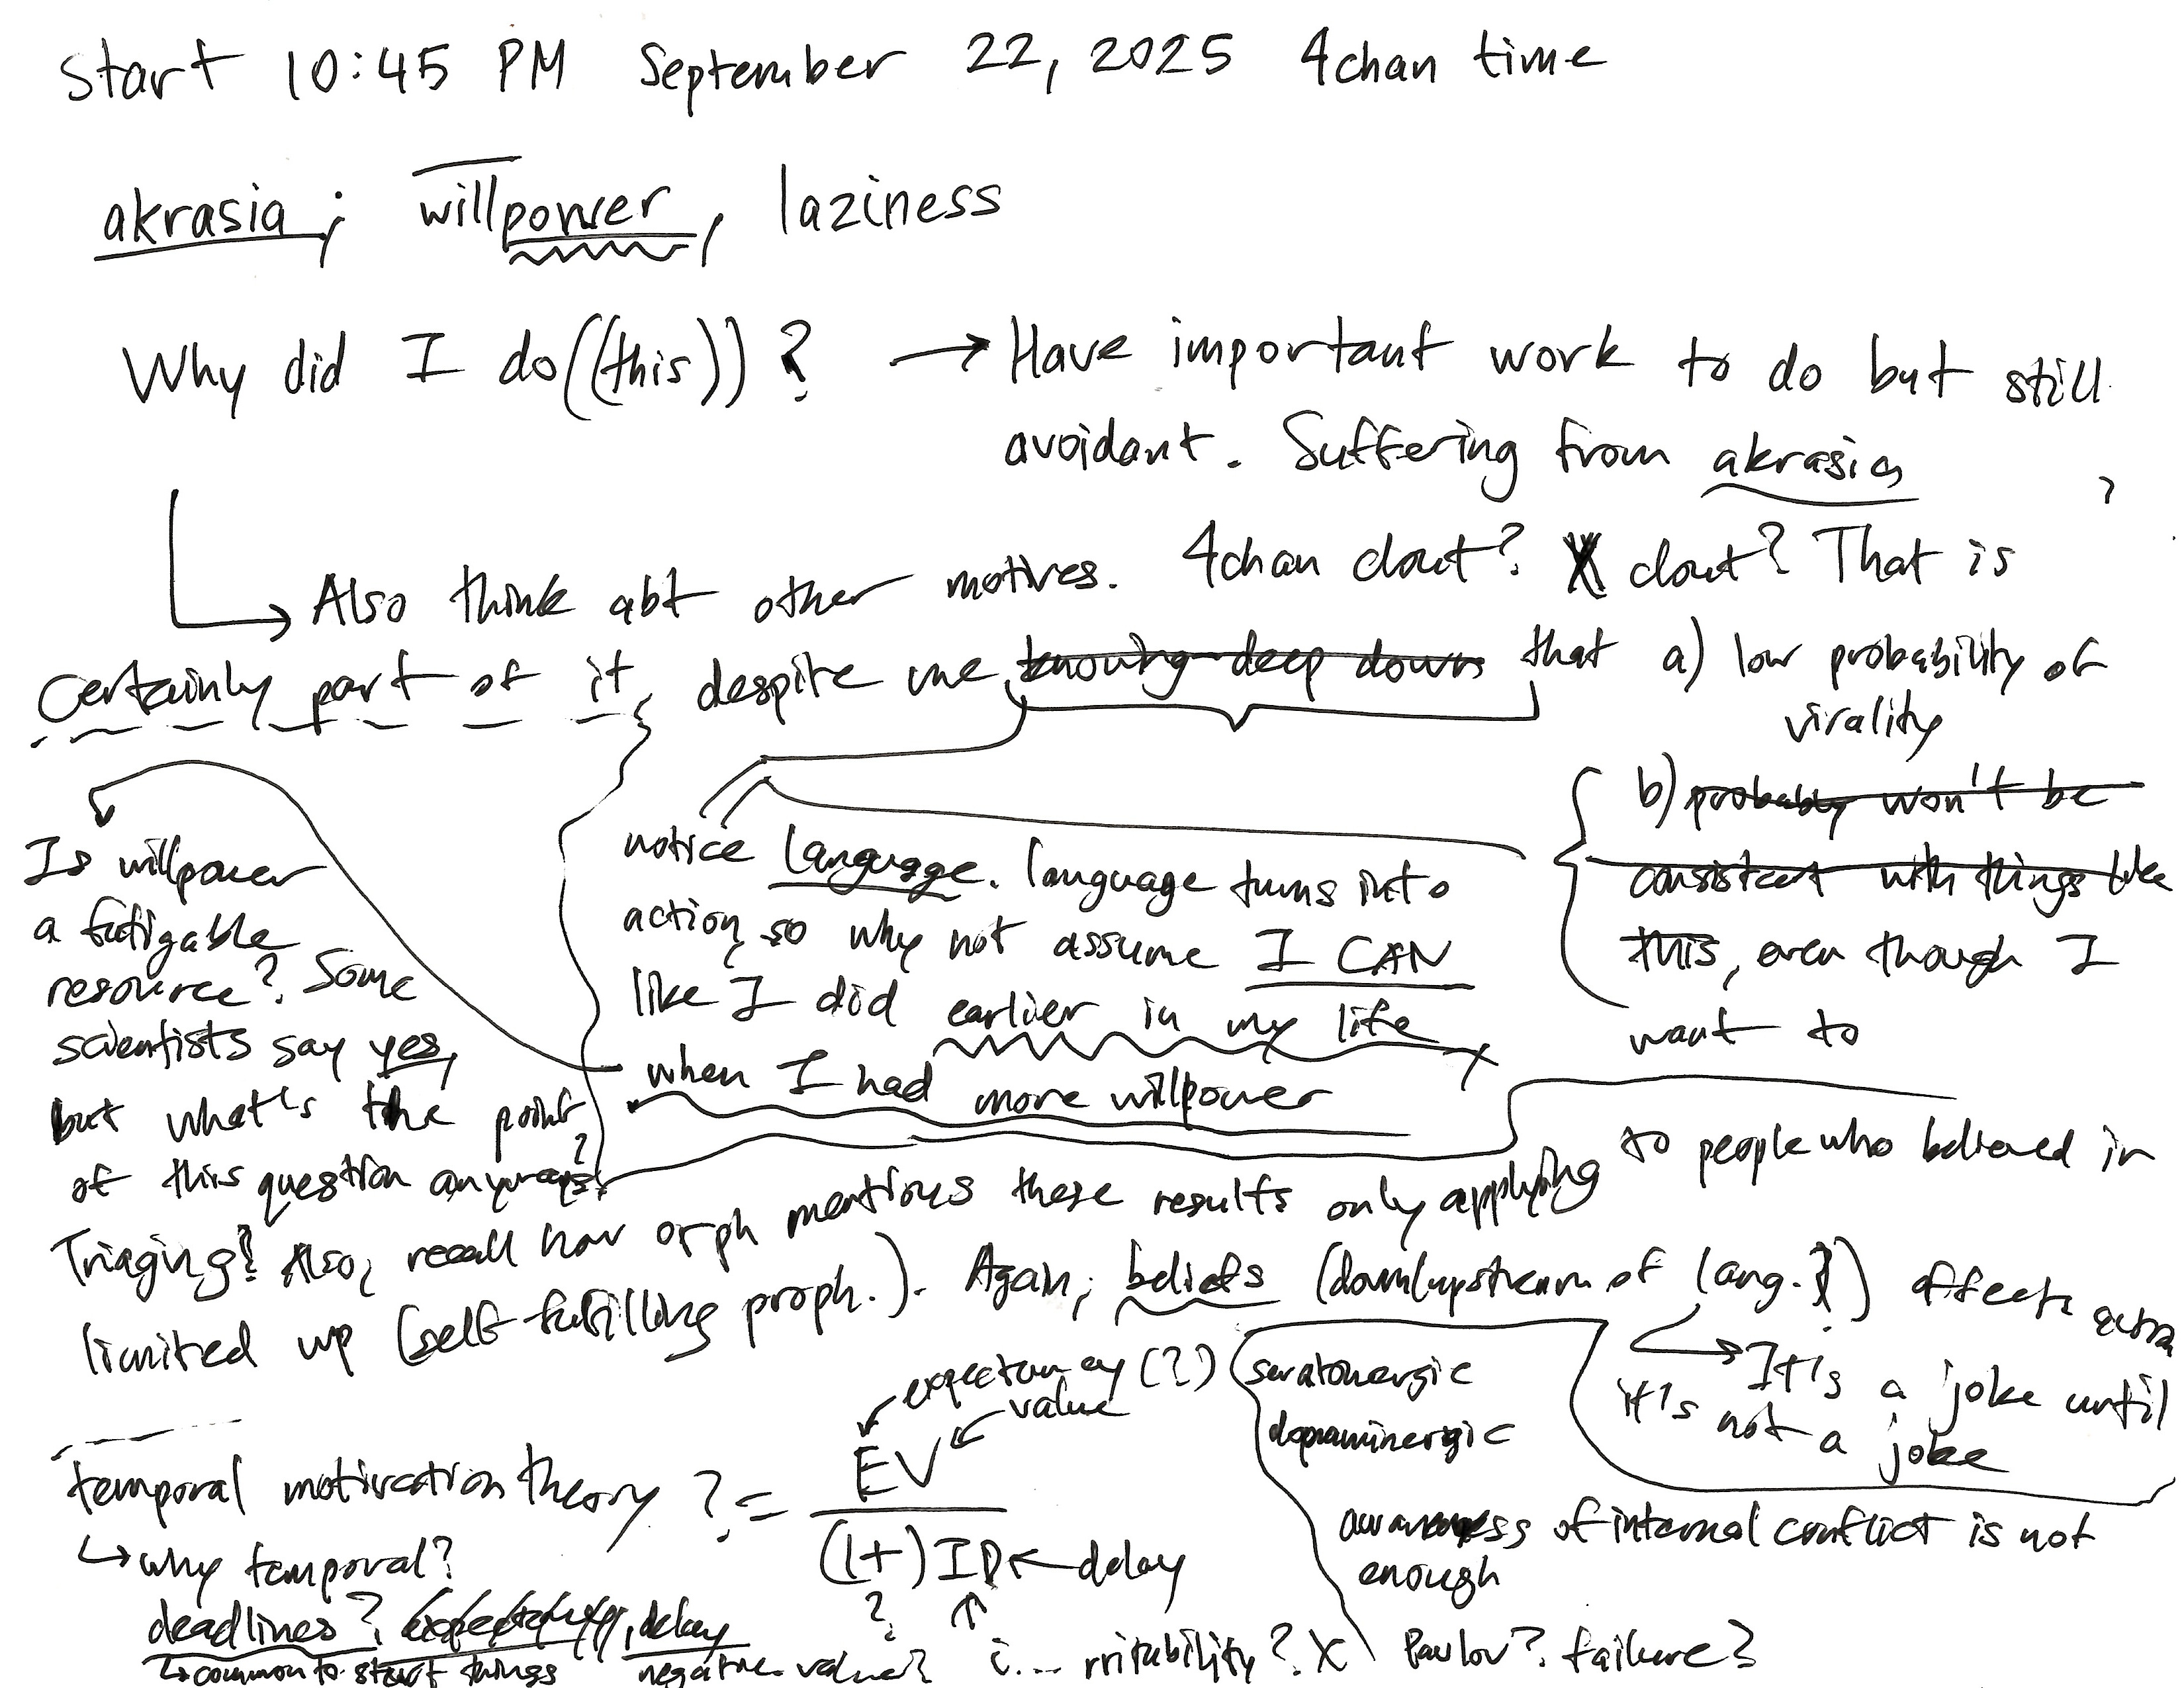 Start 10:45 PM September 22, 2025 4chan time
akrasia; willpower, laziness
Why did I do((this))? → Have important work to do but still
avoidant. Suffering from akrasia
?
↳ Also think abt other motives. 4chan clout? X clout? That is
certainly part of it, despite me knowing deep down that a) low probability of
virality
b) probably won't be
consistent with things like
this, even though I
want to
notice language. language turns into
action, so why not assume I CAN
like I did earlier in my life
when I had more willpower
Is willpower
a fatigable
resource? Some
scientists say yes,
but what's the point
of this question anyways?
Triaging? Also, recall how orph mentions these results only applying to people who believed in
limited wp (self-fulfilling proph.). Again, beliefs (down/upstream of lang.?) affects action
→ It's a joke until
it's not a joke
temporal motivation theory? = EV / (1+) ID ← delay
expectancy (?)
value
↳ why temporal?
deadlines? expectancy, delay
↳ common to start things
negative value?
?
i... rritability? X
seratonergic
dopaminergic
awareness of internal conflict is not
enough
Pavlov? failure?